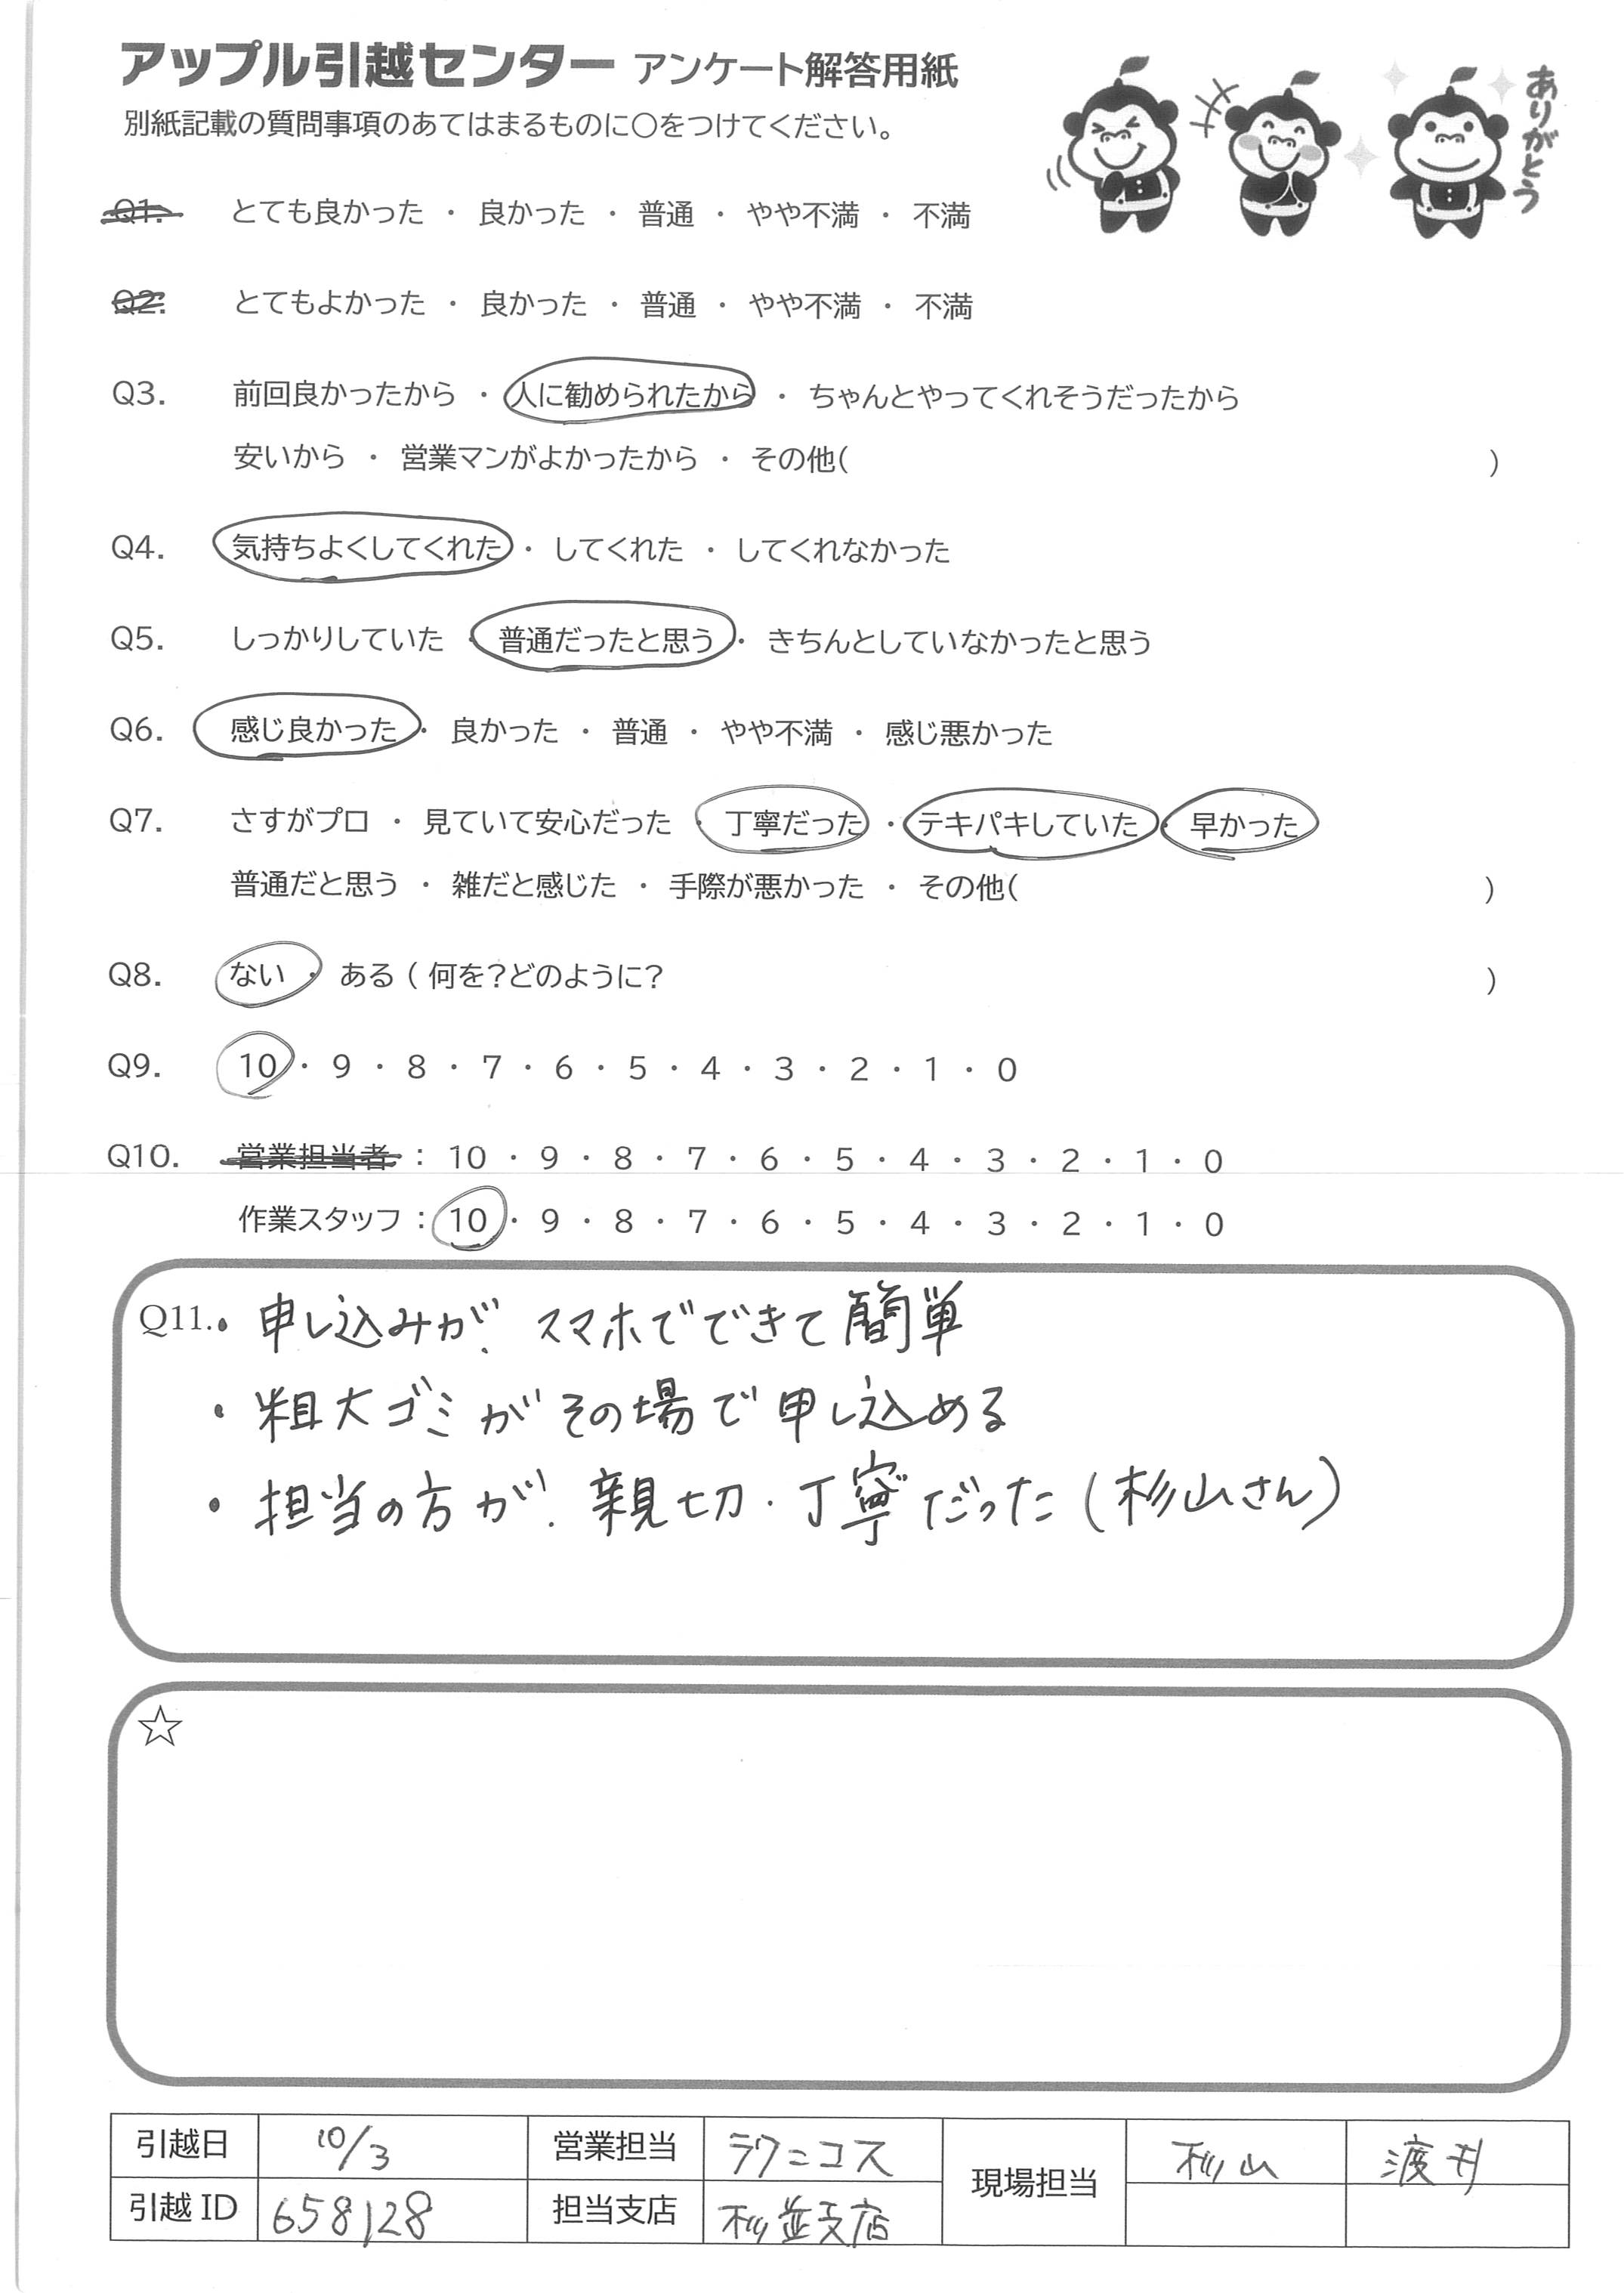 アップル引越センター アンケート解答用紙
別紙記載の質問事項のあてはまるものに○をつけてください。
ありがとう
Q1. とても良かった ・ 良かった ・ 普通 ・ やや不満 ・ 不満
Q2. とてもよかった ・ 良かった ・ 普通 ・ やや不満 ・ 不満
Q3. 前回良かったから ・ 人に勧められたから ・ ちゃんとやってくれそうだったから
安いから ・ 営業マンがよかったから ・ その他( )
Q4. 気持ちよくしてくれた ・ してくれた ・ してくれなかった
Q5. しっかりしていた ・ 普通だったと思う ・ きちんとしていなかったと思う
Q6. 感じ良かった ・ 良かった ・ 普通 ・ やや不満 ・ 感じ悪かった
Q7. さすがプロ ・ 見ていて安心だった ・ 丁寧だった ・ テキパキしていた ・ 早かった
普通だと思う ・ 雑だと感じた ・ 手際が悪かった ・ その他( )
Q8. ない ・ ある ( 何を?どのように? )
Q9. 10 ・ 9 ・ 8 ・ 7 ・ 6 ・ 5 ・ 4 ・ 3 ・ 2 ・ 1 ・ 0
Q10. 営業担当者 : 10 ・ 9 ・ 8 ・ 7 ・ 6 ・ 5 ・ 4 ・ 3 ・ 2 ・ 1 ・ 0
作業スタッフ : 10 ・ 9 ・ 8 ・ 7 ・ 6 ・ 5 ・ 4 ・ 3 ・ 2 ・ 1 ・ 0
Q11. ・ 申し込みが、スマホでできて簡単
・ 粗大ゴミがその場で申し込める
・ 担当の方が、親切・丁寧だった (杉山さん)
☆
引越日 10/3 営業担当 ラクニコス 現場担当 杉山 渡井
引越 ID 658128 担当支店 杉並支店